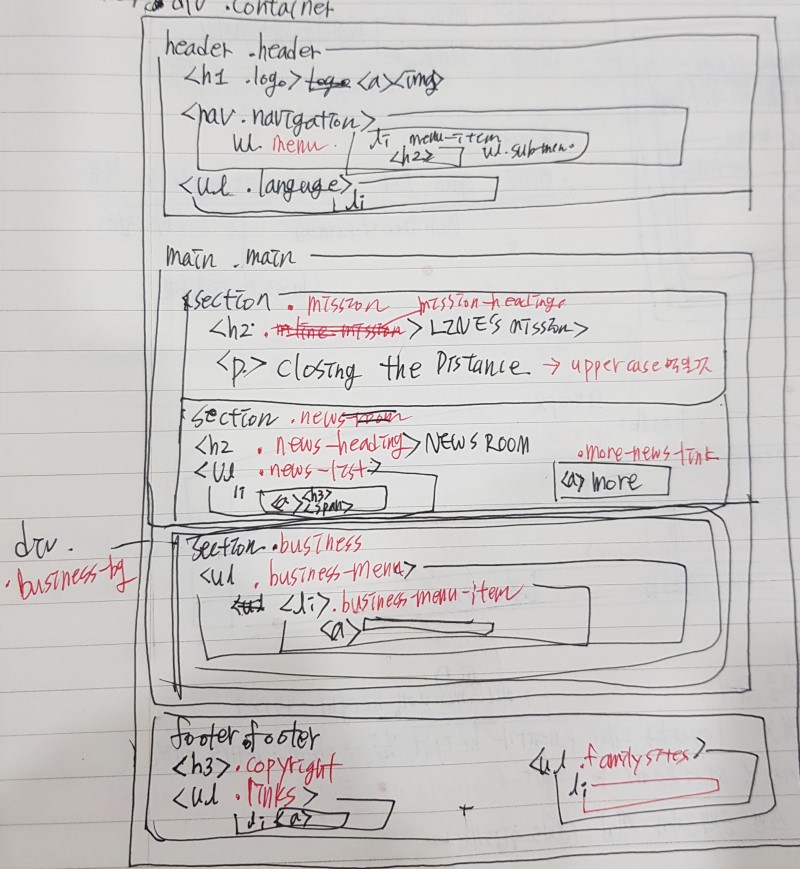 div .container
header .header
<h1 .logo> logo <a><img>
<nav.navigation>
ul. menu.
li menu-item
<h2>
ul.submenu.
<ul .language>
li
main .main
<section . mission
mission-heading
<h2 . line-mission> LINE's mission>
<p.> Closing the Distance. → uppercase
section .news-room
<h2 . news-heading> NEWS ROOM
<ul .news-list>
li <a> <h3>
<span>
.more-news-link
<a> more
div.
.business-bg
section .business
<ul . business-menu>
<ul <li>.business-menu-item
<a>
footer.footer
<h3>.copyright
<ul .links>
li <a>
+
<ul .familysites>
li